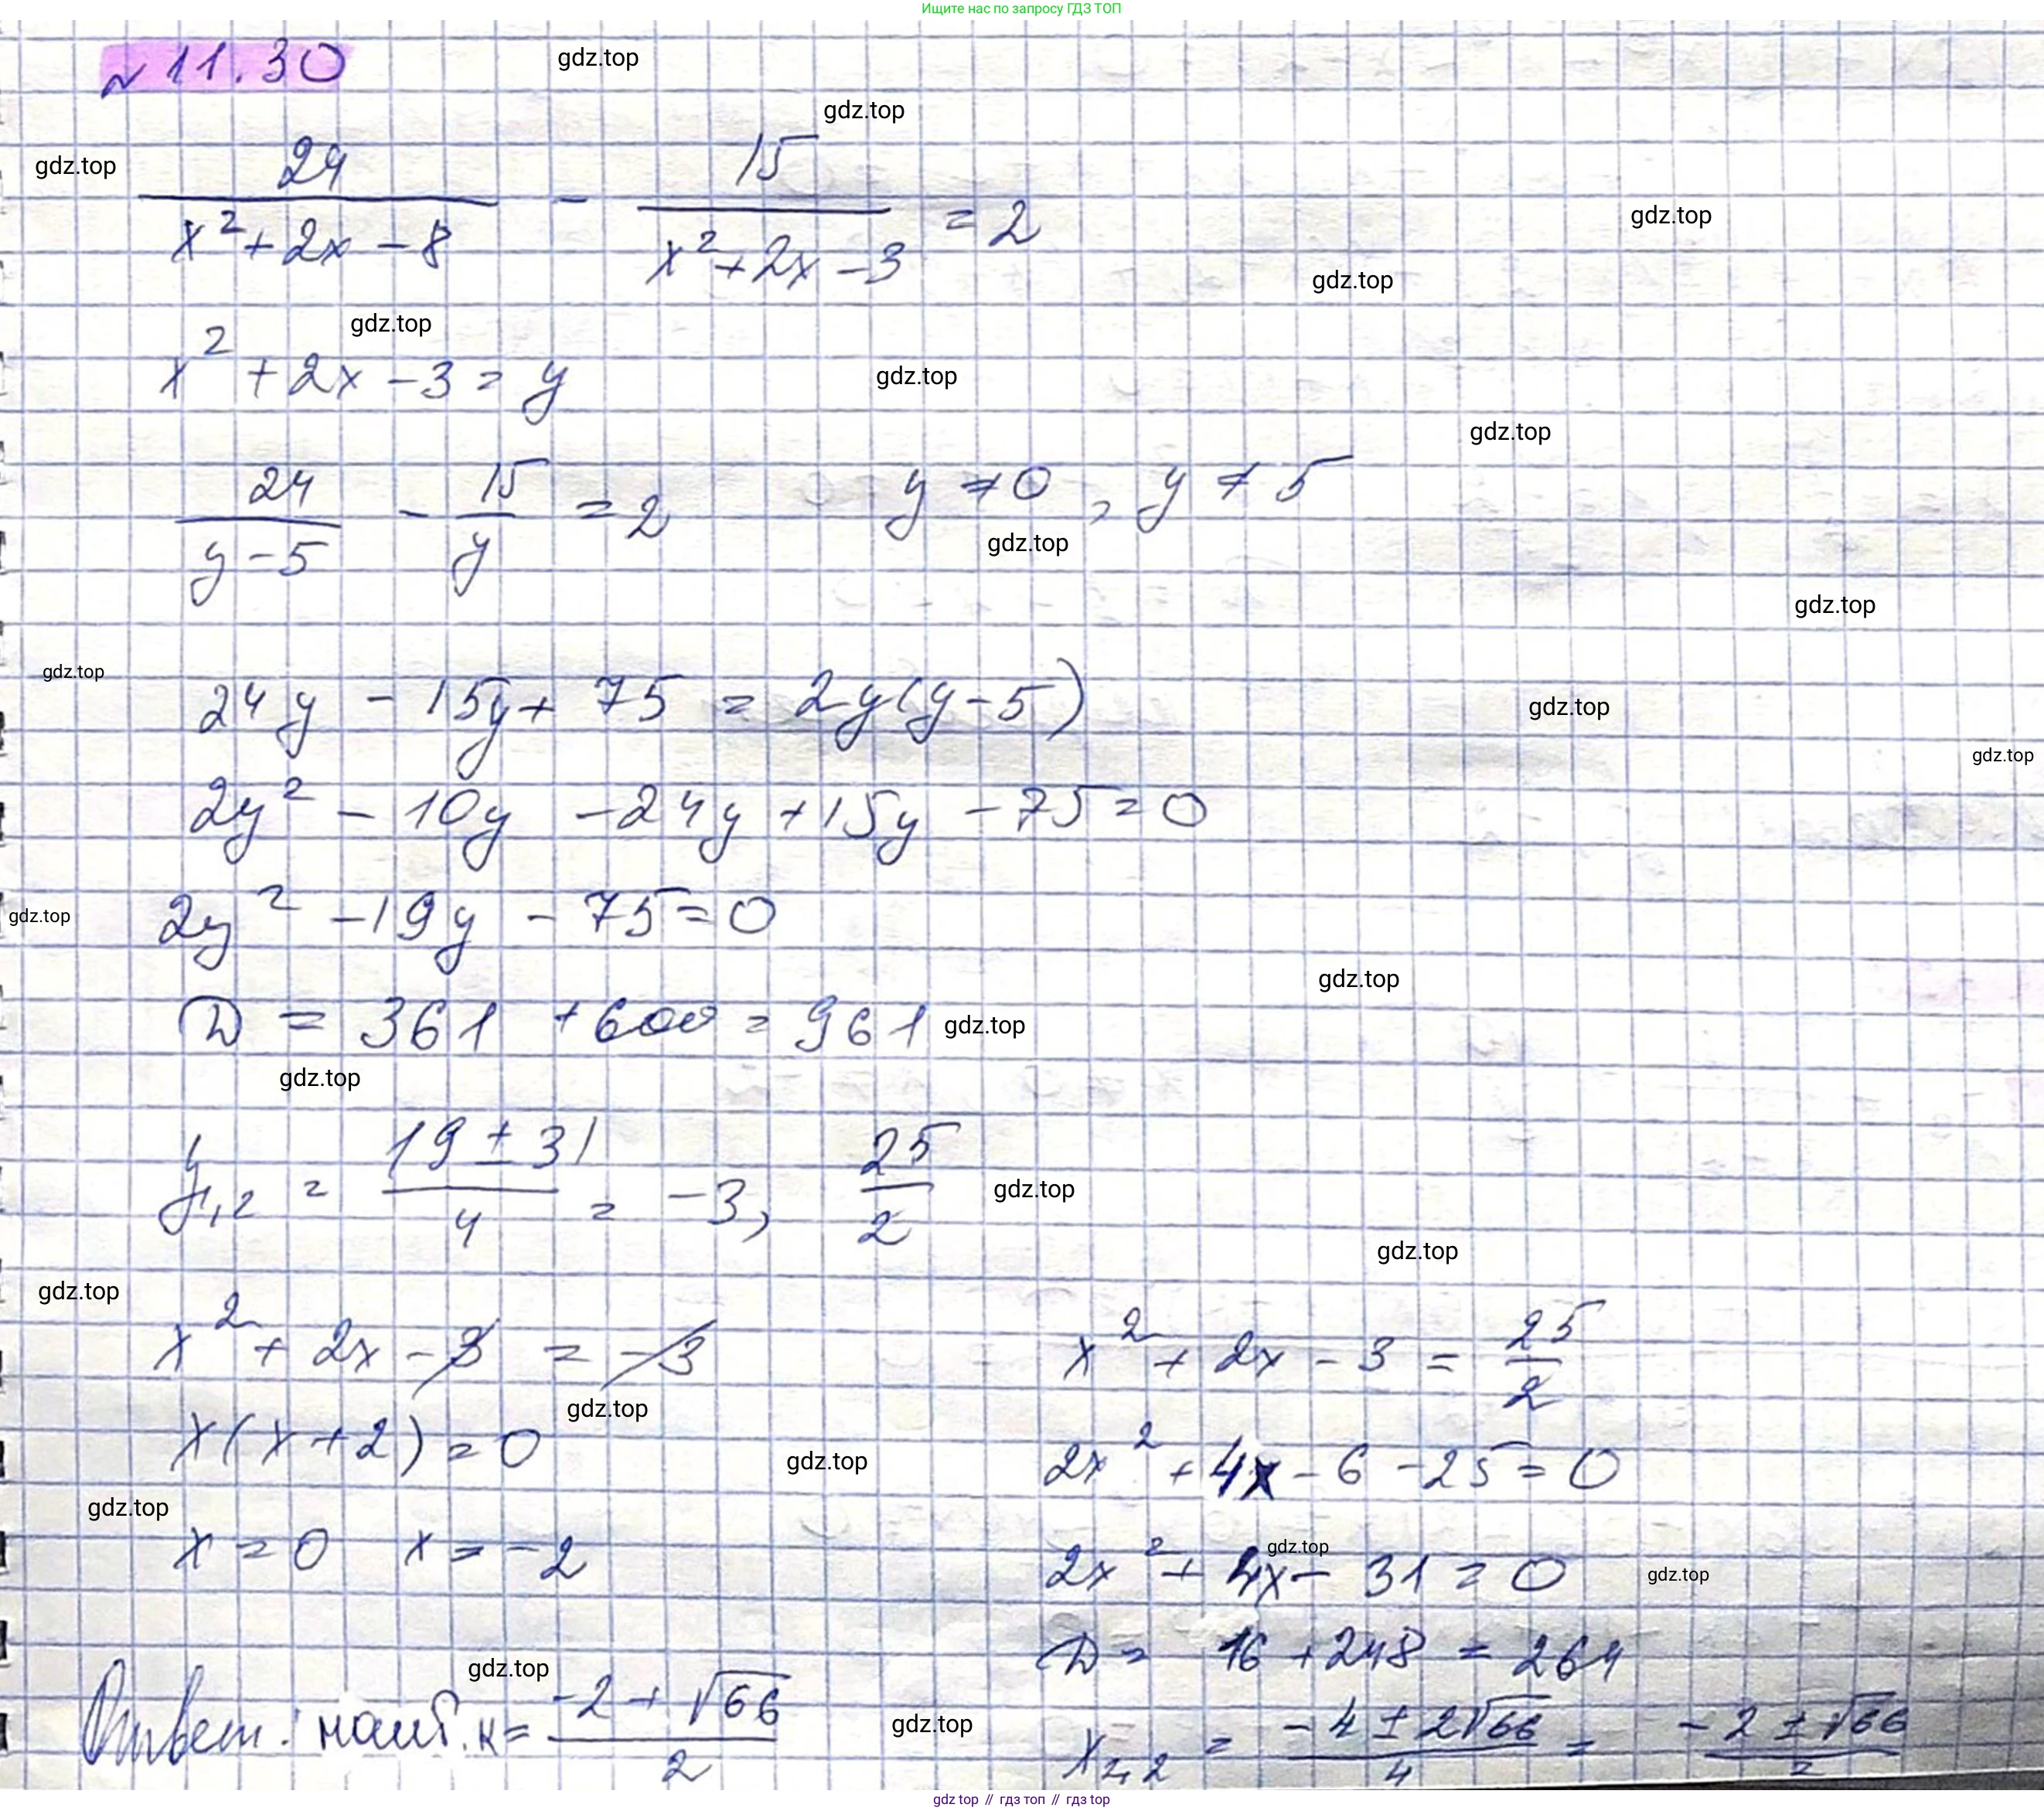 Ищите нас по запросу ГДЗ ТОП
№ 11.30
gdz.top
gdz.top
gdz.top
24/(x²+2x-8) - 15/(x²+2x-3) = 2
gdz.top
gdz.top
gdz.top
x²+2x-3=y
gdz.top
gdz.top
24/(y-5) - 15/y = 2 y≠0, y≠5
gdz.top
gdz.top
gdz.top
24y - 15y + 75 = 2y(y-5)
gdz.top
gdz.top
2y² - 10y - 24y + 15y - 75 = 0
gdz.top
2y² - 19y - 75 = 0
gdz.top
D = 361 + 600 = 961
gdz.top
gdz.top
y1,2 = (19 ± 31)/4 = -3, 25/2
gdz.top
gdz.top
gdz.top
x² + 2x - 3 = -3 x² + 2x - 3 = 25/2
gdz.top
x(x+2) = 0 2x² + 4x - 6 - 25 = 0
gdz.top
gdz.top
x = 0 x = -2 2x² + 4x - 31 = 0
gdz.top
gdz.top
D = 16 + 248 = 264
gdz.top
Ответ: наиб. к = (-2 + √66)/2 x1,2 = (-4 ± 2√66)/4 = (-2 ± √66)/2
gdz.top
gdz top // гдз топ // гдз top